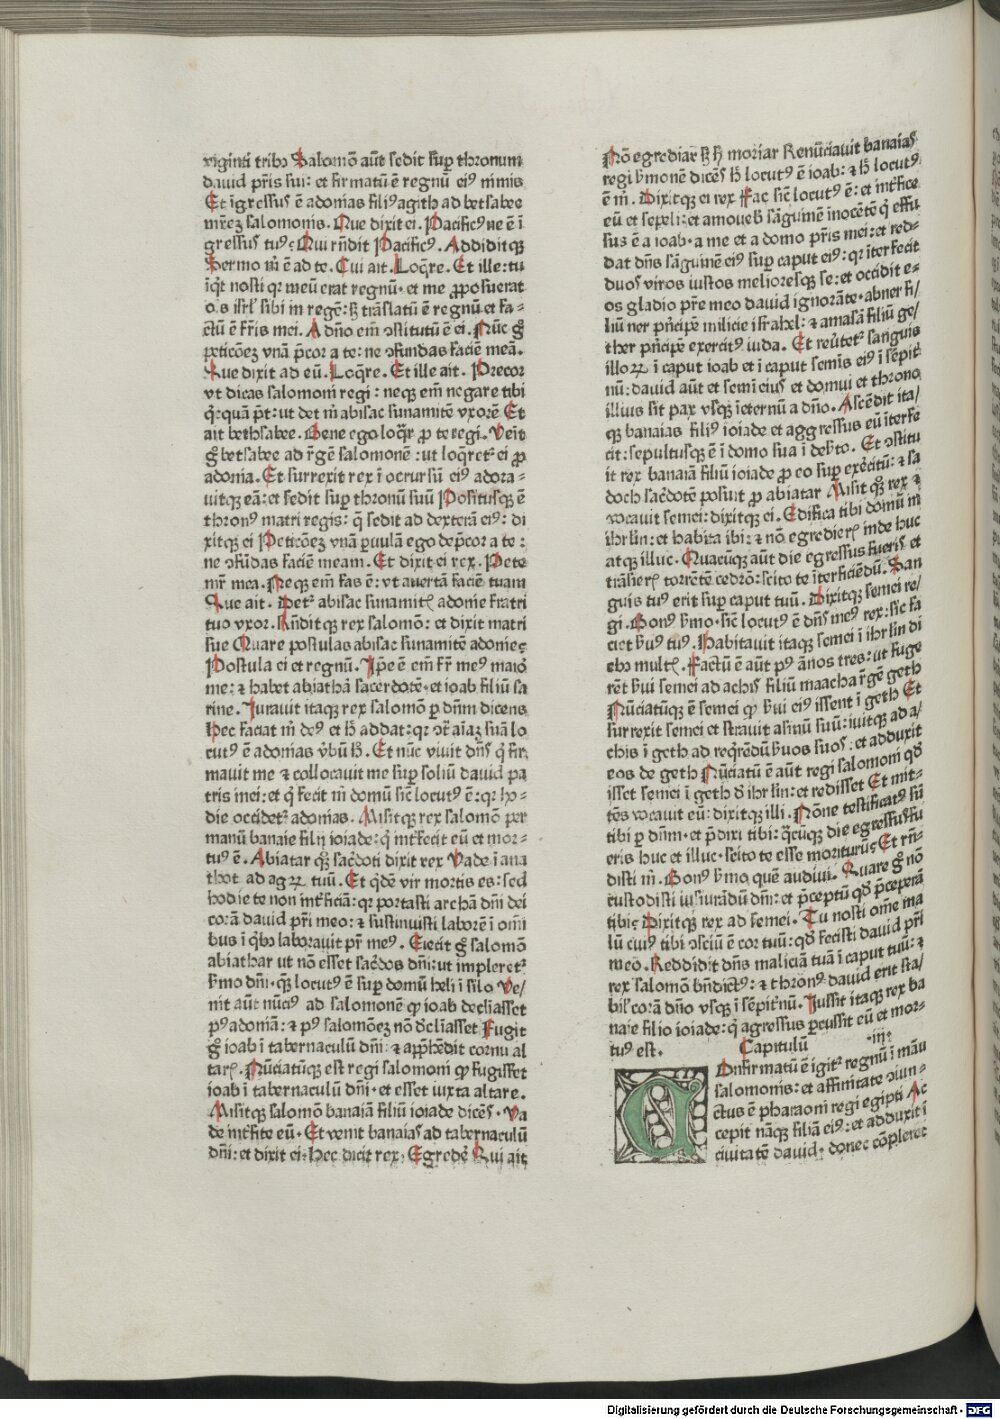 viginti tribꝰ Salomō aūt sedit suꝑ thronum
dauid pr̄is sui: et firmatū ē regnū eiꝰ nimis
Et īgressus ē adonias filiꝰ agith ad betsabee
mr̄eꝫ salomonis. Que dixit ei. Pacificꝰne ē ī
gressus tuꝰ? Qui rn̄dit Pacificꝰ. Addiditqꝫ
Sermo m̄ ē ad te. Cui ait. Loq̄re. Et ille: tu
īq̄t nosti qꝛ meū erat regnū· et me ꝓposuerat
oīs isrl̄ sibi in regē: sꝫ trāslatū ē regnū et fa⸗
ctū ē fr̄is mei. A dn̄o em̄ ↄstitutū ē ei. Nūc gͦ
peticōeꝫ vnā p̄cor a te: ne ↄfundas faciē meā.
Que dixit ad eū. Loq̄re. Et ille ait. Precor
vt dicas salomoni regi: neqꝫ em̄ negare tibi
q̄cquā pt̄: ut det m̄ abisac sunamitē vxorē Et
ait bethsabee. Bene ego loqr̄ ꝓ te regi. Venit
gͦ betsabee ad rēgē salomonē: ut loqretᷣ ei ꝓ
adonia. Et surrexit rex ī occursū eiꝰ adora⸗
uitqꝫ eā: et sedit suꝑ thronū suū Positusqꝫ ē
thronꝰ matri regis: q̄ sedit ad dexterā eiꝰ: di
xitqꝫ ei Peticōeꝫ vnā ꝑuulā ego dep̄cor a te:
ne ↄfūdas faciē meam. Et dixit ei rex. Pete
mr̄ mea. Neqꝫ em̄ fas ē: vt auertā faciē tuam
Que ait. Detᷣ abisac sunamitꝭ adonie fratri
tuo vxor. Rn̄ditqꝫ rex salomō: et dixit matri
sue Quare postulas abisac sunamitē adonie?
Postula ei et regnū. Ip̄e ē em̄ fr̄ meꝰ maior
me: ⁊ habet abiathā sacerdotē· et ioab filiū sa
rine. Iurauit itaqꝫ rex salomō ꝑ dn̄m dicens
Hec faciat m̄ deꝰ et h̄ addat: qꝛ ↄtͣ aīaꝫ suā lo
cutꝰ ē adonias v̄bū h̄. Et nūc viuit dn̄s q̄ fir
mauit me ⁊ collocauit me suꝑ soliū dauid pa
tris mei: et q̄ fecit m̄ domū sic̄ locutꝰ ē: qꝛ ho⸗
die occidetᷣ adonias. Misitqꝫ rex salomō per
manū banaie filij ioiade: q̄ int̄fecit eū et mor⸗
tuꝰ ē. Abiatar qꝫ sac̄doti dixit rex Vade ī ana
thot ad agꝝ tuū. Et q̄dē vir mortis es: sed
hodie te non int̄ficiā: qꝛ portasti archā dn̄i dei
corā dauid pr̄i meo: ⁊ sustinuisti laborē ī omī
bus ī q̄bꝰ laborauit pr̄ meꝰ. Eiecit gͦ salomō
abiathar ut nō esset sac̄dos dn̄i: ut impleretᷣ
ẜmo dn̄i· qꝫ locutꝰ ē suꝑ domū heli ī silo Ve⸗
nit aūt nūciꝰ ad salomonē ꝙ ioab declīasset
pꝰ adoniā: ⁊ pꝰ salomōeꝫ nō d̄cliasset Fugit
gͦ ioab ī tabernaculū dn̄i: ⁊ app̄hēdit cornu al
tarꝭ. Nūciatūqꝫ est regi salomoni ꝙ fugisset
ioab ī tabernaculū dn̄i· et esset iuxta altare.
Misitqꝫ salomō banaiā filiū ioiade dicēs· Va
de int̄fice eū. Et venit banaias ad tabernaculū
dn̄i: et dixit ei: Hec dicit rex: Egrede. Qui ait
Nō egrediar sꝫ h̄ moriar Renūciauit banaias
regi ẜmonē dicēs h̄ locutꝰ ē ioab: ⁊ h̄ locutꝰ
ē m̄. Dixitqꝫ ei rex Fac sic̄ locutꝰ ē: et int̄fice
eū et sepeli: et amoueb̄ sāguinē inocētē q̄ effu
sus ē a ioab· a me et a domo pr̄is mei: et red⸗
dat dn̄s sāguinē eiꝰ suꝑ caput eiꝰ: qꝛ īterfecit
duos viros iustos melioresqꝫ se: et occidit e⸗
os gladio pr̄e meo dauid ignorāte· abner fi⸗
liū ner pn̄cipē milicie israhel: ⁊ amasā filiū ge⸗
ther pn̄cipē exercitꝰ iuda. Et reūtetᷣ sanguis
illoꝝ ī caput ioab et ī caput semīs eiꝰ ī sēpit̄
nū: dauid aūt et semī eius et domui et throno
illius sit pax vsqꝫ īeternū a dn̄o. Ascēdit ita⸗
qꝫ banaias filiꝰ ioiade et aggressus eū īterfe
cit: sepultusqꝫ ē ī domo sua ī deẜto. Et ↄstitu
it rex banaiā filiū ioiade ꝓ eo suꝑ exercitū: ⁊ sa
doch sac̄dotē posuit ꝓ abiatar Misit qꝫ rex ⁊
vocauit semei: dixitqꝫ ei. Edifica tibi domū in
ihrl̄m: et habita ibi: ⁊ nō egredierꝭ inde huc
atqꝫ illuc. Quacūqꝫ aūt die egressus fueris et
trāsierꝭ torrētē cedrō: scito te īterficiēdū. San
guis tuꝰ erit suꝑ caput tuū. Dixitqꝫ semei re⸗
gi. Bonꝰ ẜmo· sic̄ locutꝰ ē dn̄s meꝰ rex: sic fa
ciet ẜuꝰ tuꝰ. Habitauit itaqꝫ semei ī ihrl̄m di
ebꝰ multꝭ. Factū ē aūt pꝰ ānos tres: ut fuge
rēt ẜui semei ad achis filiū maacha rēgē geth
Nūciatūqꝫ ē semei ꝙ ẜui eiꝰ issent ī geth Et
surrexit semei et strauit asinū suū: iuitqꝫ ad a⸗
chis ī geth ad req̄rēdū ẜuos suos: et adduxit
eos de geth Nūciatū ē aūt regi salomoni qꝫ
isset semei ī geth d̄ ihrl̄m: et redisset Et mit⸗
tēs vocauit eū: dixitqꝫ illi. Nōne testificatꝰ sū
tibi ꝑ dn̄m· et p̄dixi tibi: q̄cūqꝫ die egressus fu
eris huc et illuc· scito te esse moriturū? Et rn̄⸗
disti m̄. Bonꝰ ẜmo quē audiui. Quare gͦ nō
custodisti iusiurādū dn̄i: et p̄ceptū qꝫ p̄ceperā
tibi? Dixitqꝫ rex ad semei. Tu nosti om̄e ma
lū cuiꝰ tibi ↄsciū ē cor tuū: qꝫ fecisti dauid pr̄i
meo. Reddidit dn̄s maliciā tuā ī caput tuū: ⁊
rex salomō bn̄dictꝰ: ⁊ thronꝰ dauid erit sta⸗
bil̄ corā dn̄o vsqꝫ ī sēpit̄nū. Iussit itaqꝫ rex ba
naie filio ioiade: q̄ agressus ꝑcussit eū et mor⸗
tuꝰ est.
Capitulū ·iij·
COnfirmatū ē igitᷣ regnū ī māu
salomonis: et affinitate ↄiun⸗
ctus ē pharaoni regi egipti Ac
cepit nāqꝫ filiā eiꝰ: et adduxit ī
ciuitatē dauid· donec cōpleret
Digitalisierung gefördert durch die Deutsche Forschungsgemeinschaft - DFG